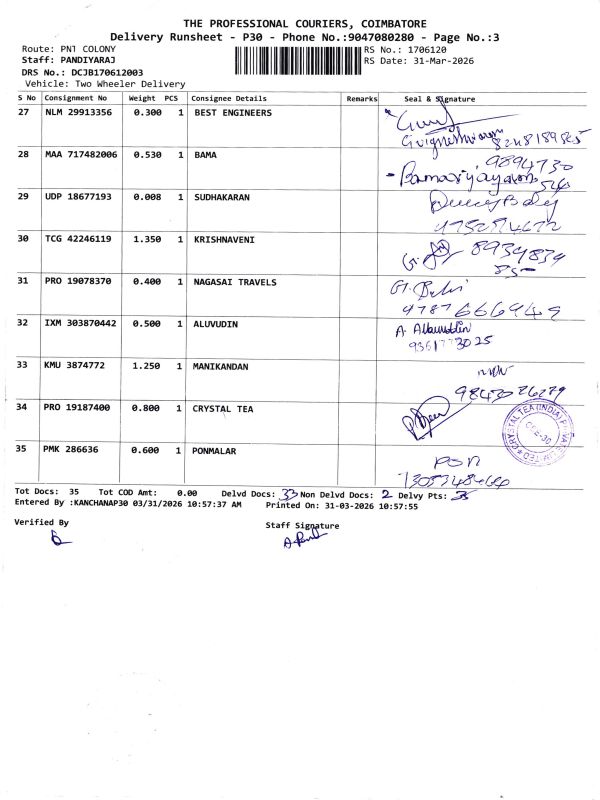 THE PROFESSIONAL COURIERS, COIMBATORE
Delivery Runsheet - P30 - Phone No.:9047080280 - Page No.:3
Route: PNT COLONY RS No.: 1706120
Staff: PANDIYARAJ RS Date: 31-Mar-2026
DRS No.: DCJB170612003
Vehicle: Two Wheeler Delivery
S No Consignment No Weight PCS Consignee Details Remarks Seal & Signature
27 NLM 29913356 0.300 1 BEST ENGINEERS
28 MAA 717482006 0.530 1 BAMA
29 UDP 18677193 0.008 1 SUDHAKARAN
30 TCG 42246119 1.350 1 KRISHNAVENI
31 PRO 19078370 0.400 1 NAGASAI TRAVELS
9787666949
32 IXM 303870442 0.500 1 ALUVUDIN
33 KMU 3874772 1.250 1 MANIKANDAN
9843026279
34 PRO 19187400 0.800 1 CRYSTAL TEA
CRYSTAL TEA (INDIA) PRIVATE LIMITED
CBE-30
35 PMK 286636 0.600 1 PONMALAR
PON
Tot Docs: 35 Tot COD Amt: 0.00 Delvd Docs: 33 Non Delvd Docs: 2 Delvy Pts:
Entered By :KANCHANAP30 03/31/2026 10:57:37 AM Printed On: 31-03-2026 10:57:55
Verified By
Staff Signature